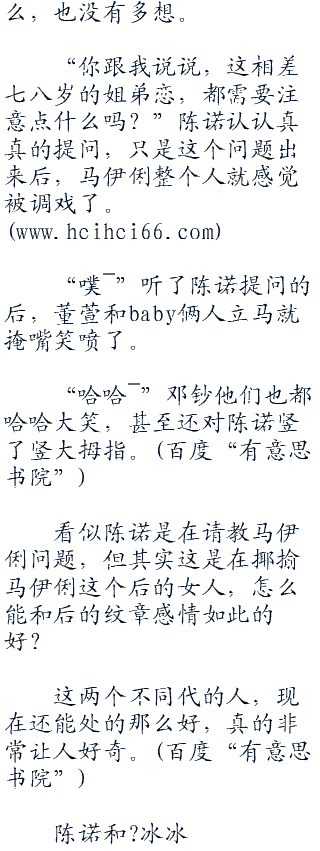 么，也没有多想。
“你跟我说说，这相差
七八岁的姐弟恋，都需要注
意点什么吗？”陈诺认认真
真的提问，只是这个问题出
来后，马伊俐整个人就感觉
被调戏了。
(www.hcihci66.com)
“噗¯”听了陈诺提问的
后，董萱和baby俩人立马就
掩嘴笑喷了。
“哈哈¯”邓钞他们也都
哈哈大笑，甚至还对陈诺竖
了竖大拇指。(百度“有意思
书院”)
看似陈诺是在请教马伊
俐问题，但其实这是在揶揄
马伊俐这个后的女人，怎么
能和后的纹章感情如此的
好？
这两个不同代的人，现
在还能处的那么好，真的非
常让人好奇。(百度“有意思
书院”)
陈诺和?冰冰